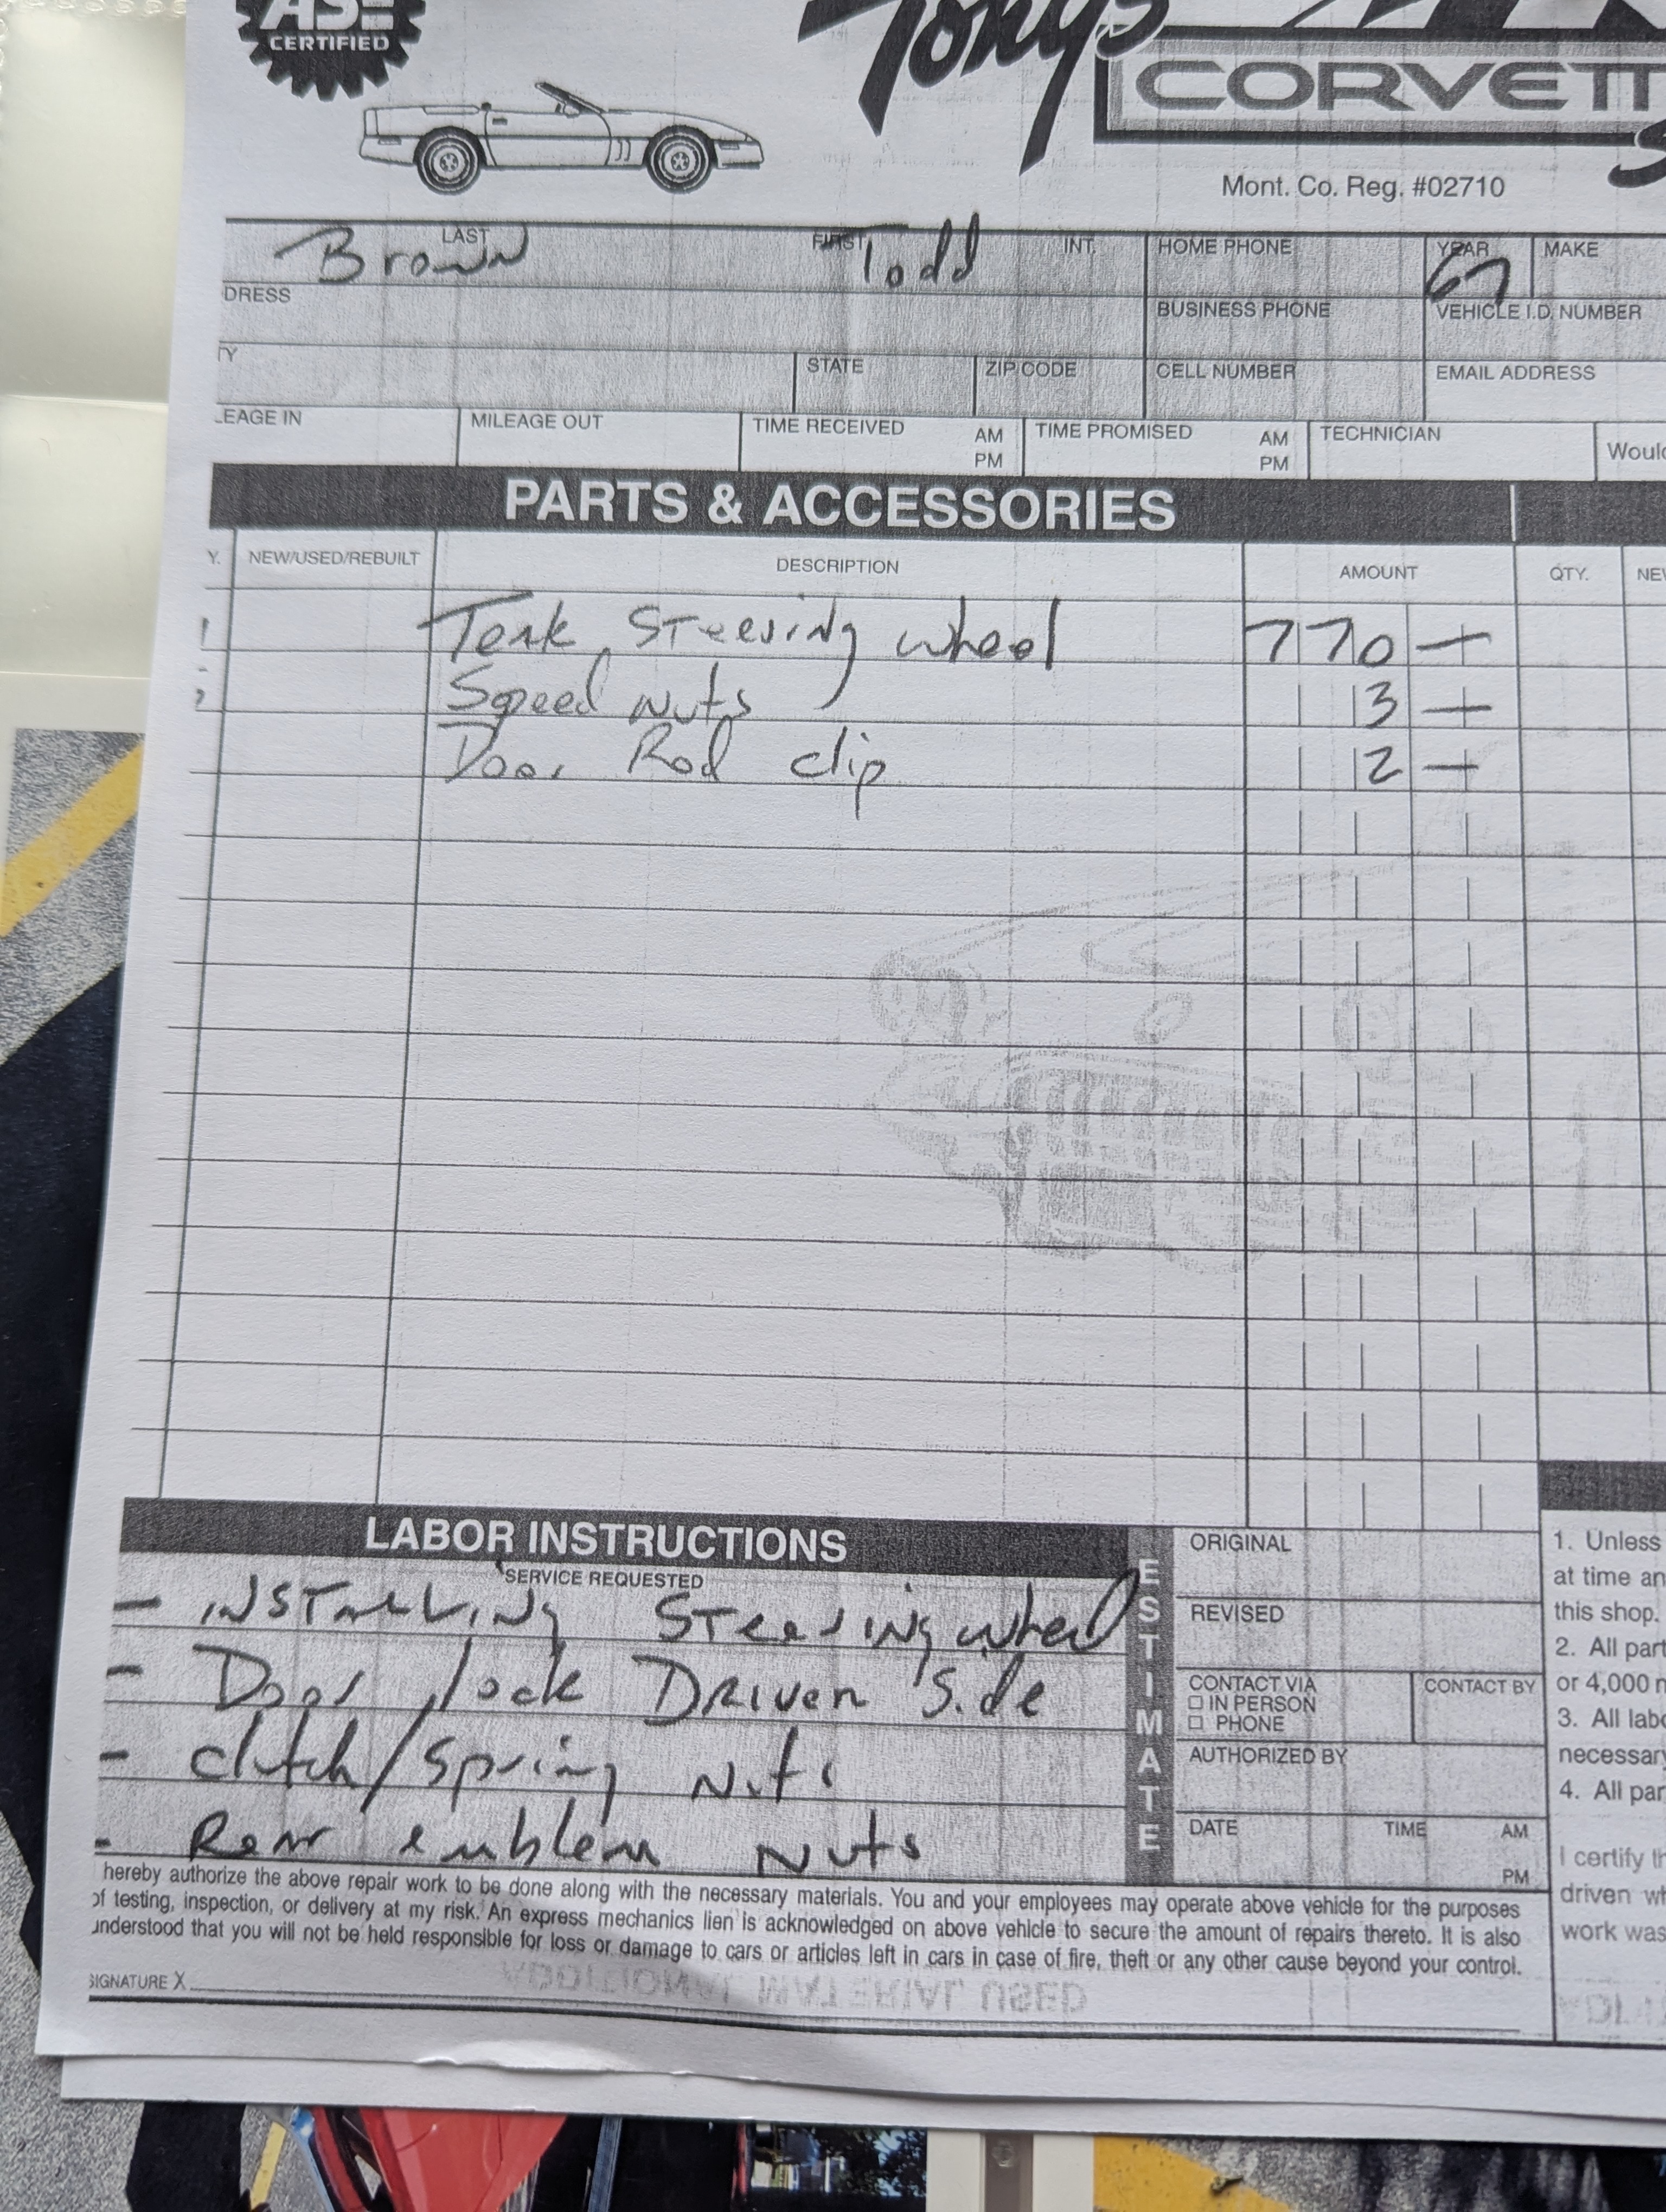 ASE
CERTIFIED
Tony's
CORVETT
Mont. Co. Reg. #02710
LAST FIRST INT. HOME PHONE YEAR MAKE
Brown Todd 67
DRESS BUSINESS PHONE VEHICLE I.D. NUMBER
TY STATE ZIP CODE CELL NUMBER EMAIL ADDRESS
LEAGE IN MILEAGE OUT TIME RECEIVED AM PM TIME PROMISED AM PM TECHNICIAN Would
PARTS & ACCESSORIES
Y. NEW/USED/REBUILT DESCRIPTION AMOUNT QTY. NEW
1 Teak Steering wheel 770 —
Speed Nuts 3 —
Door Rod clip 2 —
LABOR INSTRUCTIONS
SERVICE REQUESTED
- INSTALLINg STeering wheel
- Door lock DRIVER Side
- clutch/spring Nuts
- Rear emblem Nuts
ESTIMATE
ORIGINAL
REVISED
CONTACT VIA CONTACT BY
□ IN PERSON
□ PHONE
AUTHORIZED BY
DATE TIME AM
PM
1. Unless
at time an
this shop.
2. All part
or 4,000 m
3. All labo
necessary
4. All par
I certify th
driven wh
work was
hereby authorize the above repair work to be done along with the necessary materials. You and your employees may operate above vehicle for the purposes
of testing, inspection, or delivery at my risk. An express mechanics lien is acknowledged on above vehicle to secure the amount of repairs thereto. It is also
understood that you will not be held responsible for loss or damage to cars or articles left in cars in case of fire, theft or any other cause beyond your control.
SIGNATURE X
ADDITIONAL MATERIAL USED